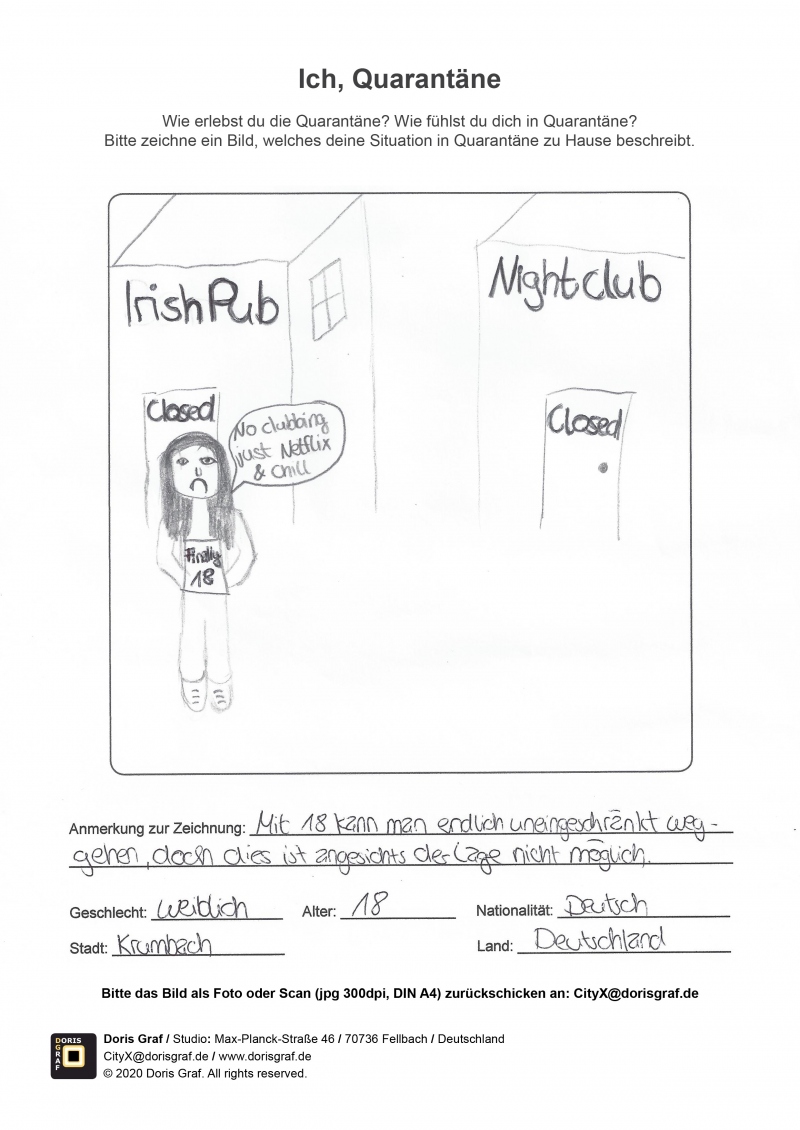 Ich, Quarantäne
Wie erlebst du die Quarantäne? Wie fühlst du dich in Quarantäne?
Bitte zeichne ein Bild, welches deine Situation in Quarantäne zu Hause beschreibt.
Irish Pub
Nightclub
Closed
Closed
No clubbing
just Netflix
& Chill
Finally
18
Anmerkung zur Zeichnung: Mit 18 kann man endlich uneingeschränkt weg-
gehen, doch dies ist angesichts der Lage nicht möglich.
Geschlecht: weiblich Alter: 18 Nationalität: Deutsch
Stadt: Krumbach Land: Deutschland
Bitte das Bild als Foto oder Scan (jpg 300dpi, DIN A4) zurückschicken an: CityX@dorisgraf.de
DORIS
GRAF
Doris Graf / Studio: Max-Planck-Straße 46 / 70736 Fellbach / Deutschland
CityX@dorisgraf.de / www.dorisgraf.de
© 2020 Doris Graf. All rights reserved.